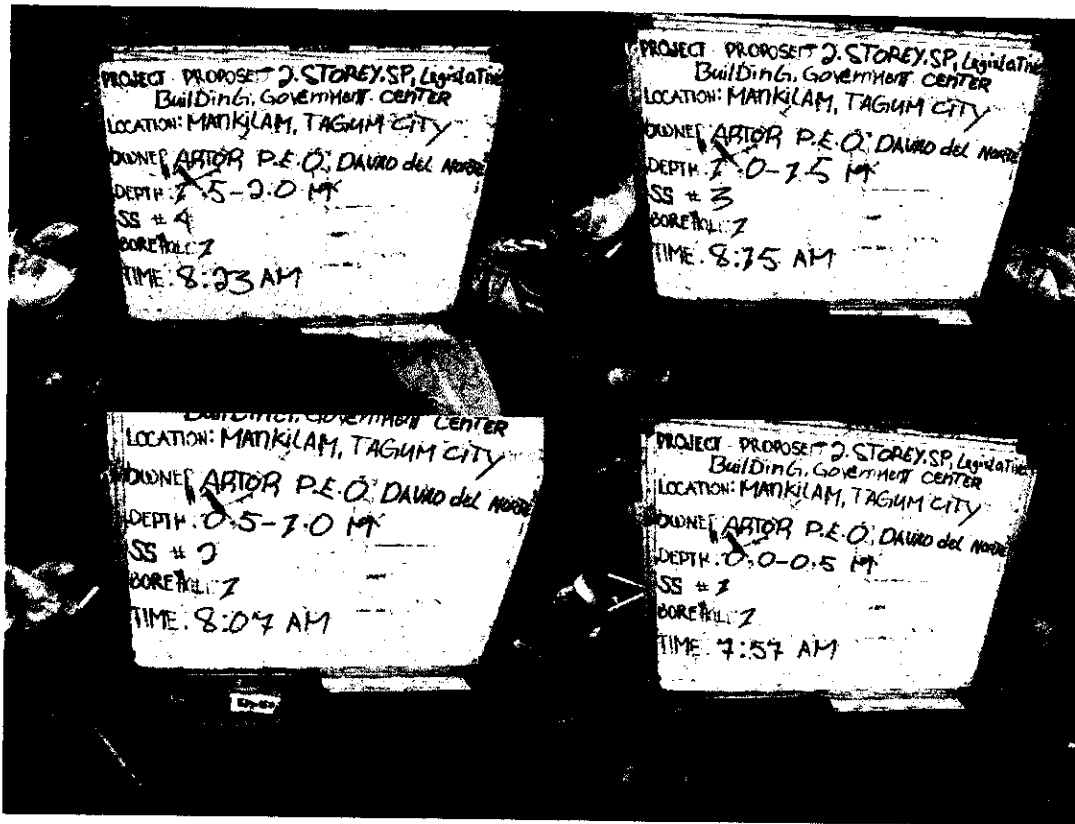 PROJECT. PROPOSED 2. STOREY. SP, LegislaTive
BuilDinG. GovernmenT. CENTER
LOCATION: MANKILAM, TAGUM CITY
OWNER ARTOR P.E.O. DAVAO del NORTE
DEPTH. 1.5-2.0 MT
SS # 4
BOREHOLE: 1
TIME. 8:23 AM
PROJECT. PROPOSED 2. STOREY. SP, LegislaTive
BuilDinG. GovernmenT CENTER
LOCATION: MANKILAM, TAGUM CITY
OWNER ARTOR P.E.O. DAVAO del NORTE
DEPTH. 1.0-1.5 MT
SS # 3
BOREHOLE: 1
TIME. 8:15 AM
BuilDinG. GovernmenT CENTER
LOCATION: MANKILAM, TAGUM CITY
OWNER ARTOR P.E.O. DAVAO del NORTE
DEPTH. 0.5-1.0 MT
SS # 2
BOREHOLE: 1
TIME. 8:07 AM
PROJECT. PROPOSED 2. STOREY. SP, LegislaTive
BuilDinG. GovernmenT CENTER
LOCATION: MANKILAM, TAGUM CITY
OWNER ARTOR P.E.O. DAVAO del NORTE
DEPTH. 0.0-0.5 MT
SS # 1
BOREHOLE: 1
TIME. 7:57 AM